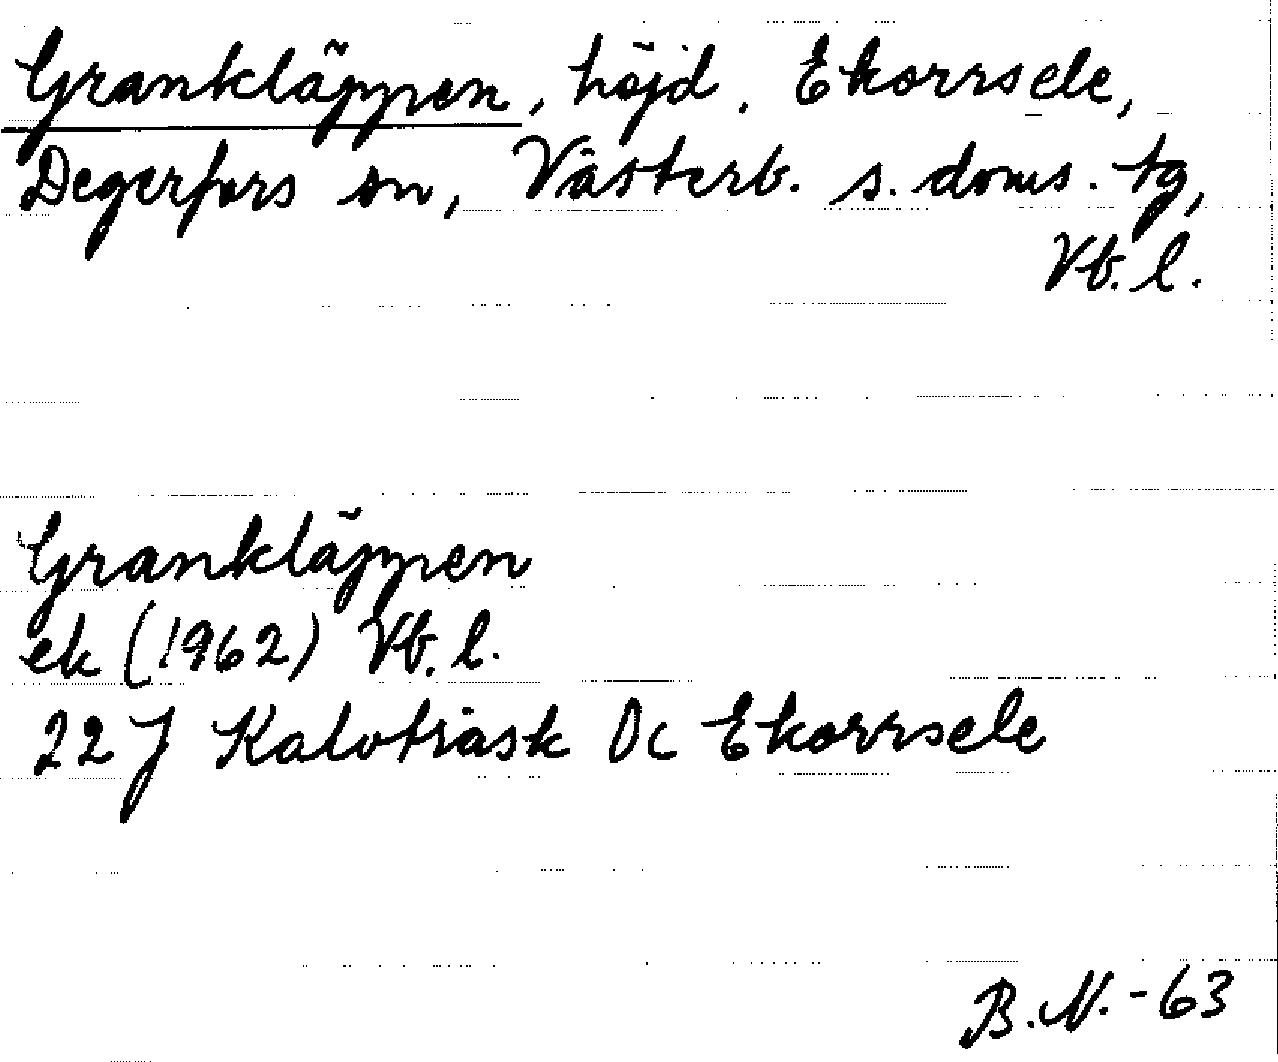 Grankläppen, höjd. Ekorrsele,
Degerfors sn, Västerb. s. doms. tg,
Vb. l.
Grankläppen
ek (1962) Vb. l.
22 J Kalvträsk 0c Ekorrsele
B.N.-63